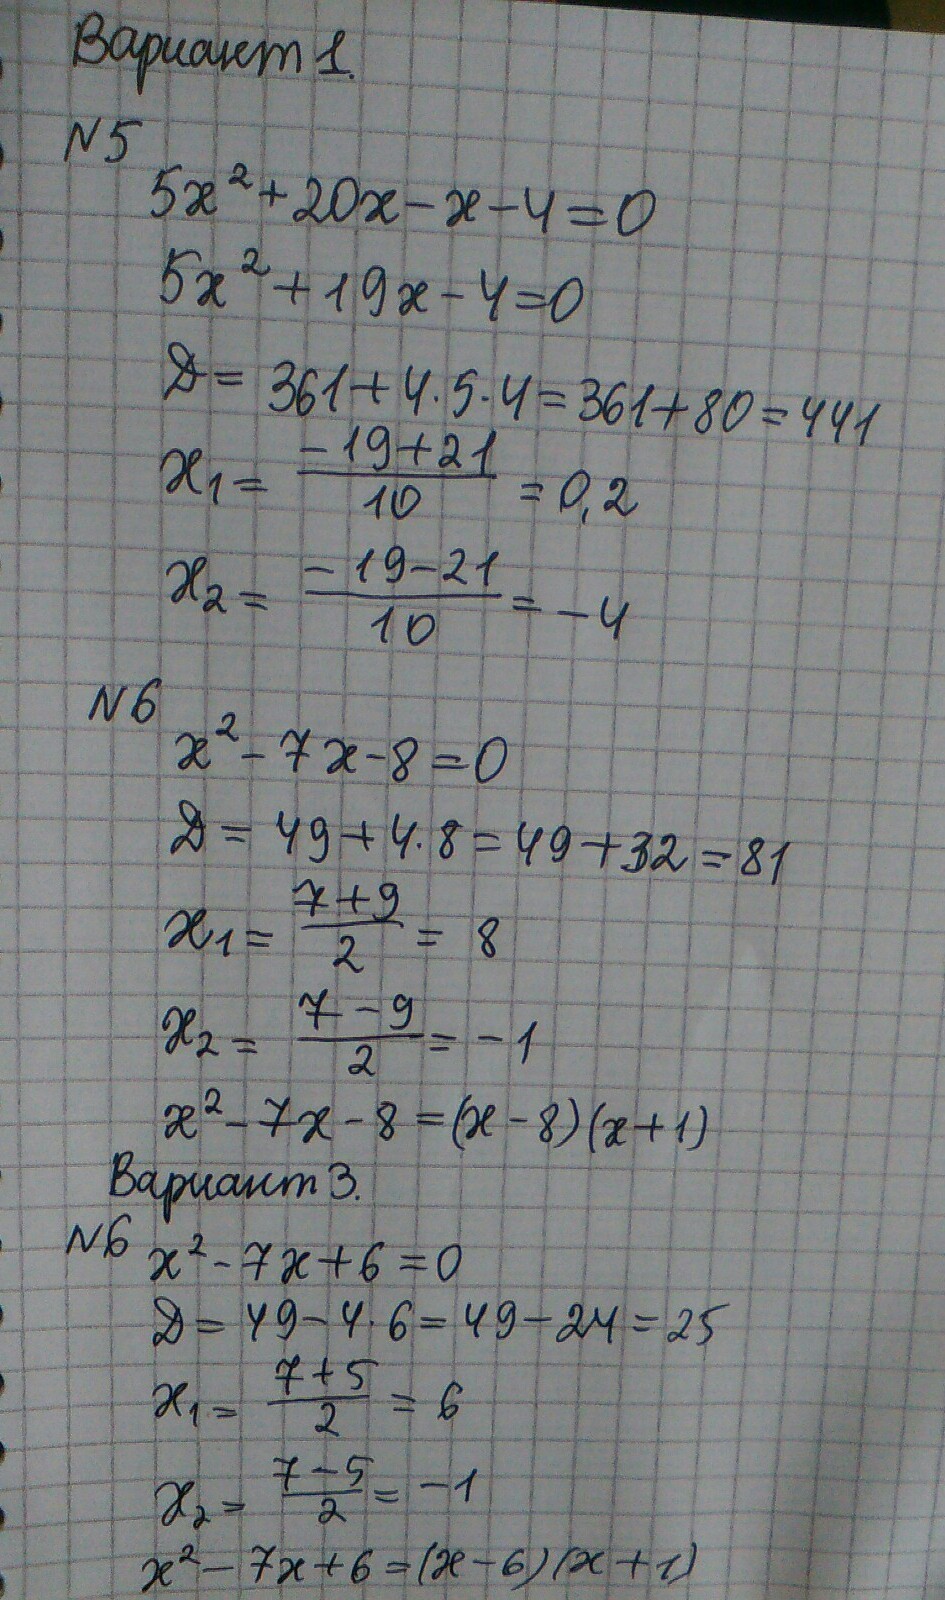 Вариант 1.
N5
5x² + 20x - x - 4 = 0
5x² + 19x - 4 = 0
D = 361 + 4·5·4 = 361 + 80 = 441
x₁ = (-19+21)/10 = 0,2
x₂ = (-19-21)/10 = -4
N6
x² - 7x - 8 = 0
D = 49 + 4·8 = 49 + 32 = 81
x₁ = (7+9)/2 = 8
x₂ = (7-9)/2 = -1
x² - 7x - 8 = (x - 8)(x + 1)
Вариант 3.
N6 x² - 7x + 6 = 0
D = 49 - 4·6 = 49 - 24 = 25
x₁ = (7+5)/2 = 6
x₂ = (7-5)/2 = -1
x² - 7x + 6 = (x - 6)(x + 1)